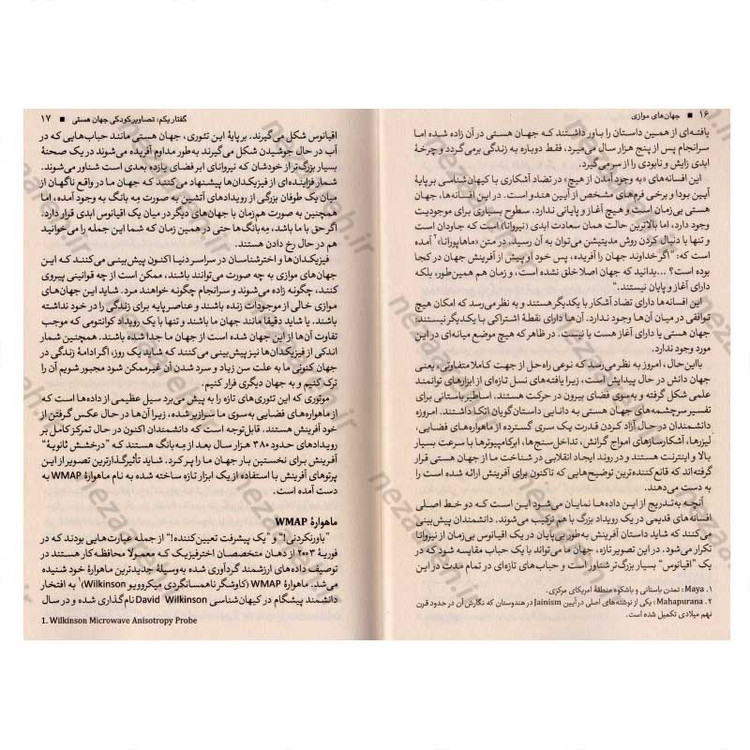 ۱۶ ■ جهان‌های موازی
یافته‌ای از همین داستان را باور داشتند که جهان هستی در آن زاده شده اما
سرانجام پس از پنج هزار سال می‌میرد، فقط دوباره به زندگی برمی‌گردد و چرخهٔ
ابدی زایش و نابودی را از سر می‌گیرد.
این افسانه‌های «به وجود آمدن از هیچ» در تضاد آشکاری با کیهان‌شناسی بر پایهٔ
آیین بودا و برخی فرم‌های مشخص از آیین هندو است. در این افسانه‌ها، جهان
هستی بی‌زمان است و هیچ آغاز و پایانی ندارد. سطوح بسیاری برای موجودیت
وجود دارد، اما بالاترین حالت همان سعادت ابدی (نیروانا) است که جاودان است
و تنها با دنبال کردن روش مدیتیشن می‌توان به آن رسید. در متن «ماهاپورانا»۲ آمده
است که: "اگر خداوند جهان را آفریده، پس خود او پیش از آفرینش جهان در کجا
بوده است؟ ...بدانید که جهان اصلا خلق نشده است، و زمان هم همین‌طور، بلکه
دارای آغاز و پایان نیستند."
این افسانه‌ها دارای تضاد آشکار با یکدیگر هستند و به نظر می‌رسد که امکان هیچ
توافقی در میان آن‌ها وجود ندارد. آن‌ها دارای نقطهٔ اشتراکی با یکدیگر نیستند:
جهان هستی یا دارای آغاز هست یا نیست. در ظاهر که هیچ موضع میانه‌ای در این
مورد وجود ندارد.
بااین‌حال، امروزه به نظر می‌رسد که نوعی راه‌حل از جهت کاملا متفاوتی، یعنی
جهان دانش در حال پیدایش است، زیرا یافته‌های نسل تازه‌ای از ابزارهای توانمند
علمی شکل گرفته و به‌سوی فضای بیرون در حرکت هستند. اساطیر باستانی برای
تفسیر سرچشمه‌های جهان هستی به دانایی داستان‌گویان اتکا داشتند. امروزه
دانشمندان در حال آزاد کردن قدرت یک سری گسترده از ماهواره‌های فضایی،
لیزرها، آشکارسازهای امواج گرانش، تداخل‌سنج‌ها، ابرکامپیوترها با سرعت بسیار
بالا و اینترنت هستند و در روند ایجاد انقلابی در شناخت ما از جهان هستی قرار
گرفته‌اند که قانع‌کننده‌ترین توضیح‌هایی که تاکنون برای آفرینش ارائه شده است را
به دست می‌دهند.
آنچه به‌تدریج از این داده‌ها نمایان می‌شود این است که دو خط اصلی
افسانه‌های قدیمی در یک رویداد بزرگ با هم ترکیب می‌شوند. دانشمندان پیش‌بینی
می‌کنند که شاید داستان آفرینش به‌طور بی‌پایان در یک اقیانوس بی‌زمان از نیروانا
تکرار می‌شود. در این تصویر تازه، جهان ما می‌تواند با یک حباب مقایسه شود که در
یک "اقیانوس" بسیار بزرگ‌تر شناور است و حباب‌های تازه‌ای در تمام مدت در این
۱. Maya : تمدن باستانی و باشکوه منطقهٔ آمریکای مرکزی.
۲. Mahapurana : یکی از نوشته‌های اصلی در آیین Jainism در هندوستان که نگارش آن در حدود قرن
نهم میلادی تکمیل شده است.
گفتار یکم: تصاویر کودکی جهان هستی ■ ۱۷
اقیانوس شکل می‌گیرند. بر پایهٔ این تئوری، جهان هستی مانند حباب‌هایی که در
آب در حال جوشیدن شکل می‌گیرند به‌طور مداوم آفریده می‌شوند در یک صحنهٔ
بسیار بزرگ‌تر از خودشان که نیروانای ابر فضای یازده بعدی است شناور می‌شوند.
شمار فزاینده‌ای از فیزیکدان‌ها پیشنهاد می‌کنند که جهان ما در واقع ناگهان از
میان یک طوفان بزرگ از رویدادهای آتشین به صورت مِه بانگ به وجود آمده، اما
همچنین به صورت هم‌زمان با جهان‌های دیگر در میان یک اقیانوس ابدی قرار دارد.
اگر حق با ما باشد، مِه‌بانگ‌ها حتی در همین زمان که شما این جمله را می‌خوانید
هم در حال رخ دادن هستند.
فیزیکدان‌ها و اخترشناسان در سراسر دنیا اکنون پیش‌بینی می‌کنند که این
جهان‌های موازی به چه صورت می‌توانند باشند، ممکن است از چه قوانینی پیروی
کنند، چگونه زاده می‌شوند و سرانجام چگونه خواهند مرد. شاید این جهان‌های
موازی خالی از موجودات زنده باشند و عناصر پایه برای زندگی را در خود نداشته
باشند. یا شاید دقیقا مانند جهان ما باشند و تنها با یک رویداد کوانتومی که موجب
تفاوت آن‌ها از این جهان شده است از جهان ما جدا شده باشند. همچنین شمار
اندکی از فیزیکدان‌ها نیز پیش‌بینی می‌کنند که شاید یک روز، اگر ادامهٔ زندگی در
جهان کنونی ما به علت سن زیاد و سرد شدن آن غیرممکن شود مجبور شویم آن را
ترک کنیم و به جهان دیگری فرار کنیم.
موتوری که این تئوری‌های تازه را به پیش می‌برد سیل عظیمی از داده‌ها است که
از ماهواره‌های فضایی به‌سوی ما سرازیر شده، زیرا آن‌ها در حال عکس گرفتن از
خود آفرینش هستند. قابل‌توجه است که دانشمندان اکنون در حال تمرکز کامل بر
رویدادهای حدود ۳۸۰ هزار سال بعد از مِه‌بانگ هستند که "درخشش ثانویهٔ"
آفرینش برای نخستین بار جهان ما را پر کرد. شاید تأثیرگذارترین تصویر از این
پرتوهای آفرینش با استفاده از یک ابزار تازه ساخته شده به نام ماهوارهٔ WMAP به
دست آمده است.
ماهوارهٔ WMAP
"باورنکردنی!" و "یک پیشرفت تعیین کننده!" از جمله عبارت‌هایی بودند که در
فوریهٔ ۲۰۰۳ از دهان متخصصان اخترفیزیک که معمولا محافظه‌کار هستند در
توصیف داده‌های ارزشمند گردآوری شده به‌وسیلهٔ جدیدترین ماهوارهٔ خود شنیده
می‌شد. ماهوارهٔ WMAP (کاوشگر ناهمسانگردی میکروویو Wilkinson)۱ به افتخار
دانشمند پیشگام در کیهان‌شناسی David Wilkinson نام‌گذاری شده و در سال
1. Wilkinson Microwave Anisotropy Probe
nezaareh.ir